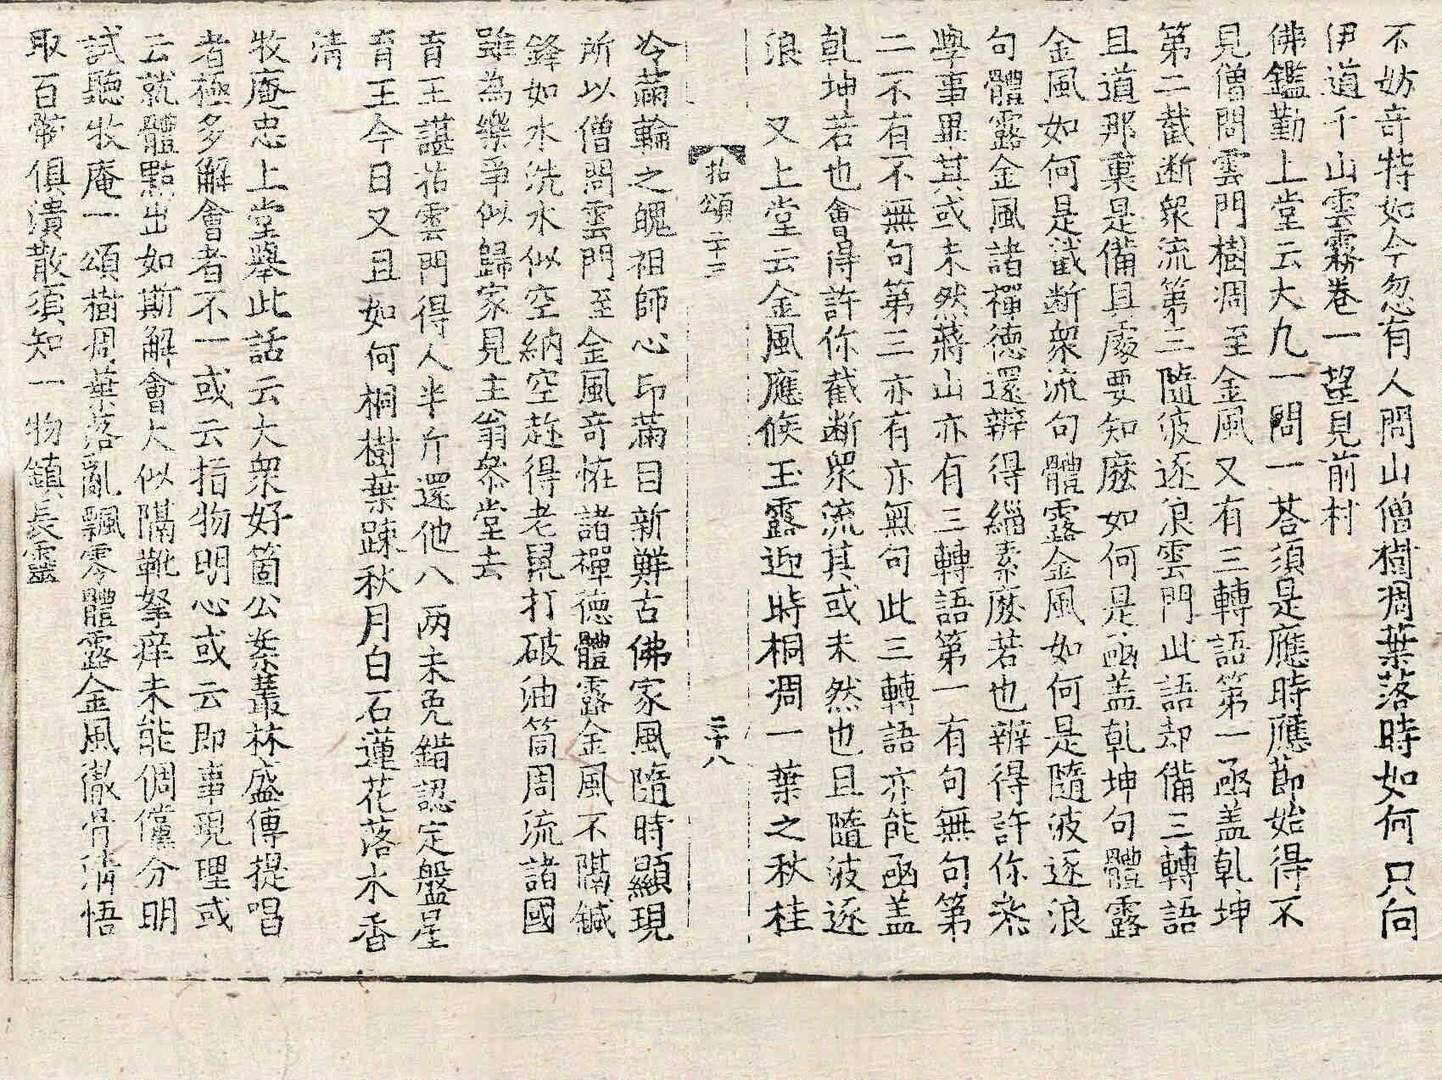 不妨奇特如今忽有人問山僧樹凋葉落時如何只向
伊道千山雲霧卷一望見前村
佛鑑勤上堂云大凡一問一荅須是應時應節始得不
見僧問雲門樹凋至金風又有三轉語第一凾盖乹坤
第二截断衆流第三隨波逐浪雲門此語却備三轉語
且道那裏是備且處要知麽如何是凾盖乹坤句體露
金風如何是截断衆流句體露金風如何是隨波逐浪
句體露金風諸禪德還辨得緇素麽若也辨得許你叅
學事畢其或未然蔣山亦有三轉語第一有句無句第
二不有不無句第三亦有亦無句此三轉語亦能凾盖
乹坤若也會得許你截断衆流其或未然也且隨波逐
浪 又上堂云金風應候玉露迎時桐凋一葉之秋桂
拈頌二十三 二十八
冷蘭輪之魄祖師心印滿目新鮮古佛家風隨時顯現
所以僧問雲門至金風奇恠諸禪德體露金風不隔鍼
鋒如水洗水似空納空趂得老鼠打破油筒周流諸國
雖為樂爭似歸家見主翁叅堂去
育王諶拈雲門得人半斤還他八两未免錯認定盤星
育王今日又且如何桐樹葉踈秋月白石蓮花落水香
清
牧庵忠上堂舉此話云大衆好箇公案叢林盛傳提唱
者極多解會者不一或云指物明心或云即事現理或
云就體點出如斯解會大似隔靴拏痒未能倜儻分明
試聽牧庵一頌樹凋葉落亂飄零體露金風徹骨清悟
取百骸俱潰散須知一物鎮長靈